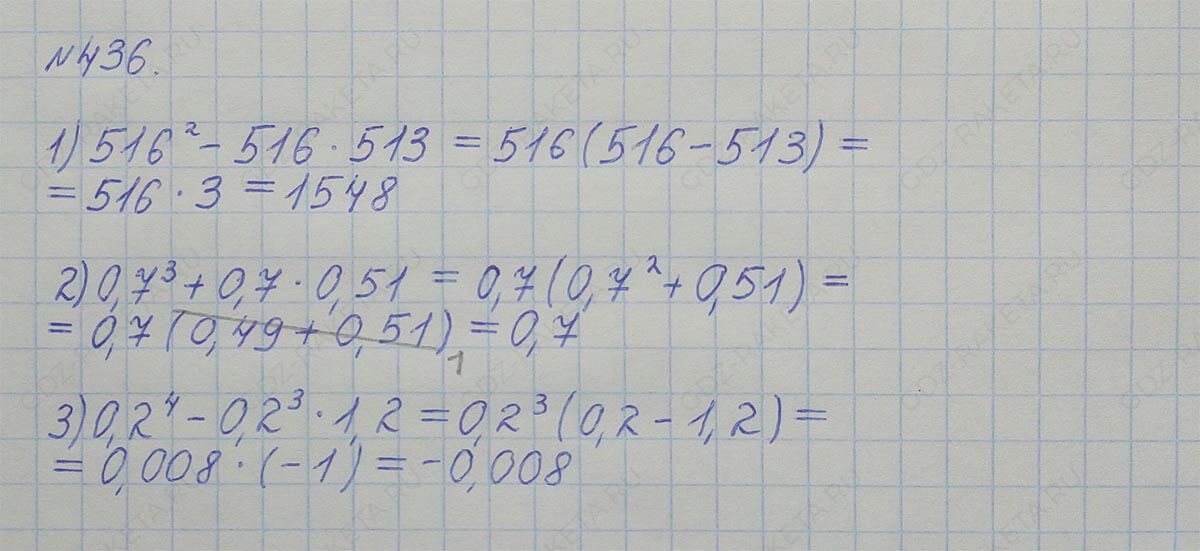 №436.
1) 516² - 516 · 513 = 516(516 - 513) =
= 516 · 3 = 1548
2) 0,7³ + 0,7 · 0,51 = 0,7(0,7² + 0,51) =
= 0,7(0,49 + 0,51) = 0,7
1
3) 0,2⁴ - 0,2³ · 1,2 = 0,2³(0,2 - 1,2) =
= 0,008 · (-1) = -0,008
GDZ-RAKETA.RU